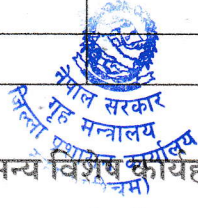 नेपाल सरकार
गृह मन्त्रालय
जिल्ला प्रशासन कार्यालय
चम)
न्य विशेष कार्यह